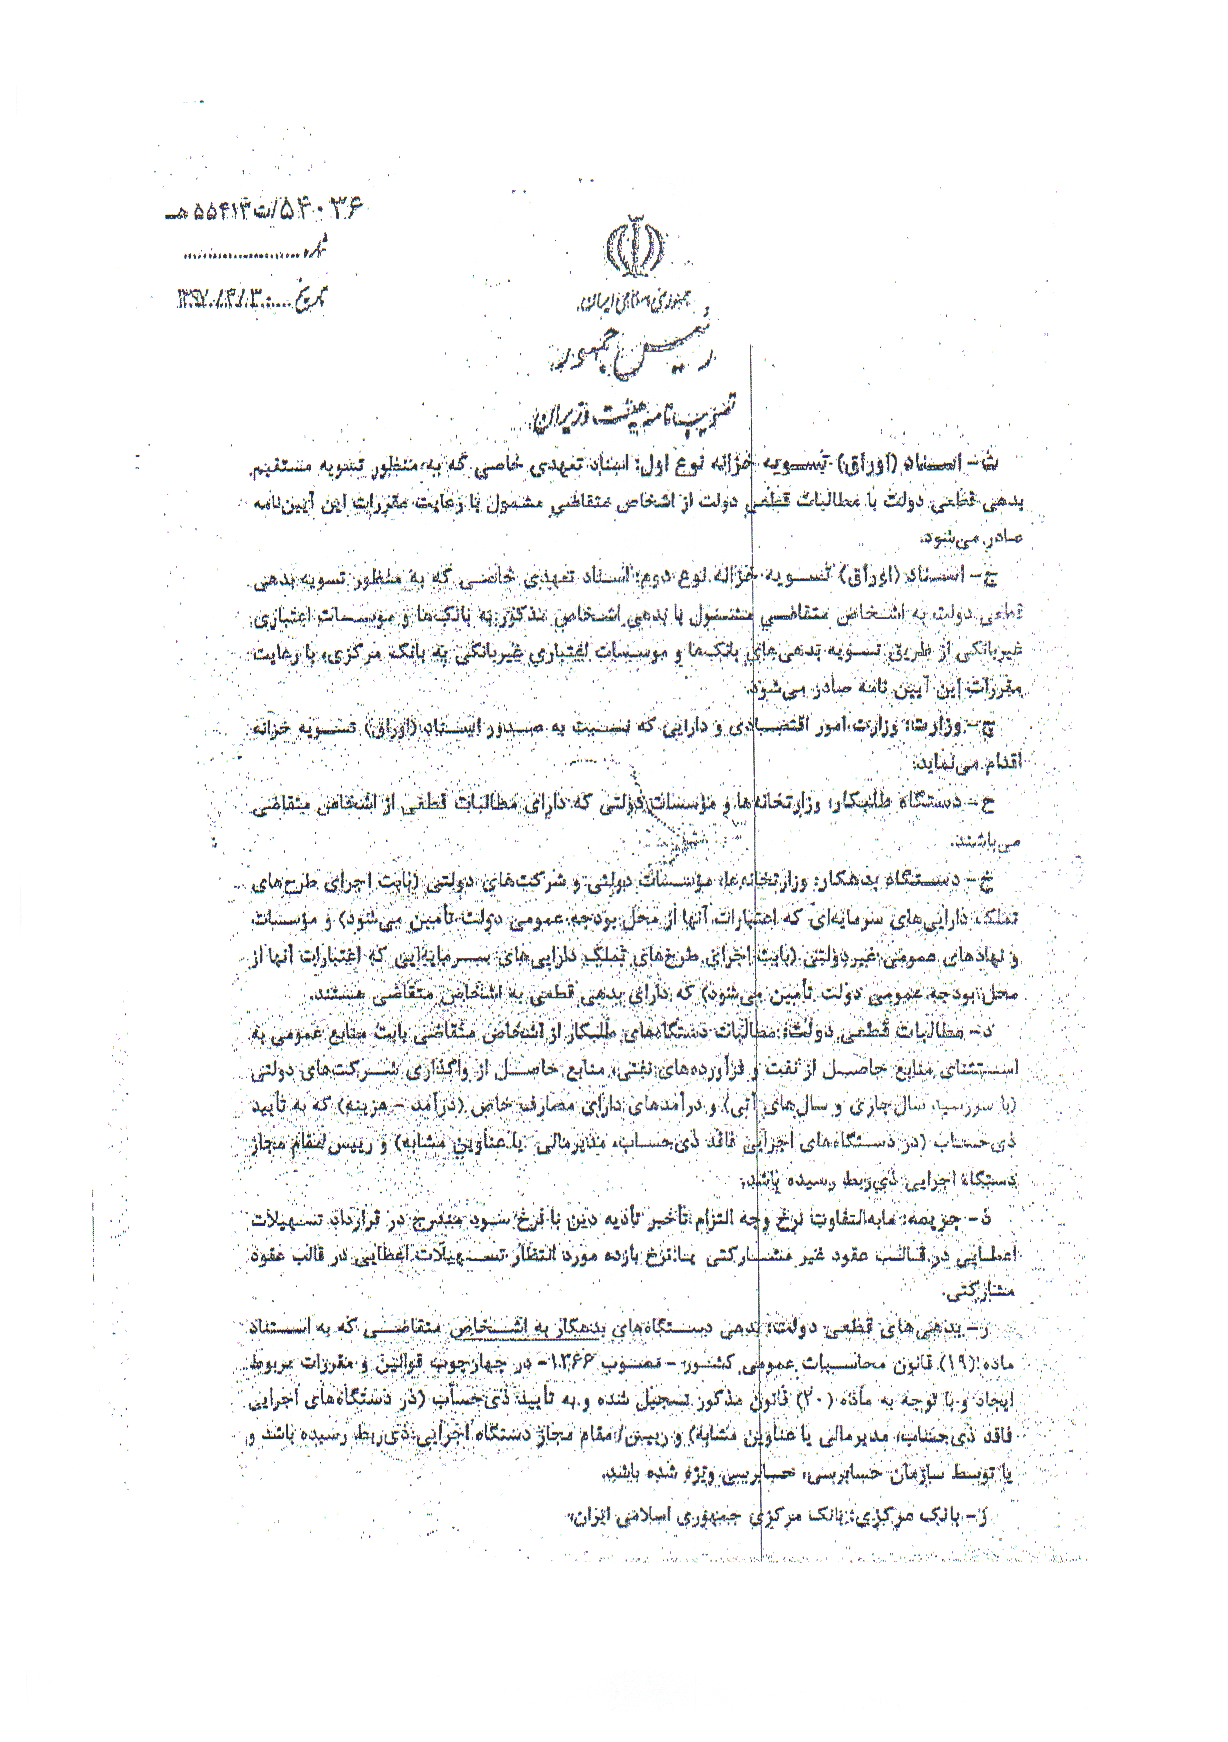 ۵۴۰۳۶/ت۵۵۴۱۳هـ
شماره
تاریخ ۱۳۹۷/۴/۳۰
جمهوری اسلامی ایران
رئیس جمهور
تصویب نامه هیئت وزیران
ث- اسناد (اوراق) تسویه خزانه نوع اول: اسناد تعهدی خاصی که به منظور تسویه مستقیم
بدهی قطعی دولت با مطالبات قطعی دولت از اشخاص متقاضی مشمول با رعایت مقررات این آیین‌نامه
صادر می‌شود.
ج- اسناد (اوراق) تسویه خزانه نوع دوم: اسناد تعهدی خاصی که به منظور تسویه بدهی
قطعی دولت به اشخاص متقاضی مشمول با بدهی اشخاص مذکور به بانک‌ها و موسسات اعتباری
غیربانکی از طریق تسویه بدهی‌های بانک‌ها و موسسات اعتباری غیربانکی به بانک مرکزی، با رعایت
مقررات این آیین نامه صادر می‌شود.
چ- وزارت: وزارت امور اقتصادی و دارایی که نسبت به صدور اسناد (اوراق) تسویه خزانه
اقدام می‌نماید.
ح- دستگاه طلبکار: وزارتخانه‌ها و مؤسسات دولتی که دارای مطالبات قطعی از اشخاص متقاضی
می‌باشند.
خ- دستگاه بدهکار: وزارتخانه‌ها، مؤسسات دولتی و شرکت‌های دولتی (بابت اجرای طرح‌های
تملک دارایی‌های سرمایه‌ای که اعتبارات آنها از محل بودجه عمومی دولت تأمین می‌شود) و مؤسسات
و نهادهای عمومی غیردولتی (بابت اجرای طرح‌های تملک دارایی‌های سرمایه‌ایی که اعتبارات آنها از
محل بودجه عمومی دولت تأمین می‌شود) که دارای بدهی قطعی به اشخاص متقاضی هستند.
د- مطالبات قطعی دولت: مطالبات دستگاه‌های طلبکار از اشخاص متقاضی بابت منابع عمومی به
استثنای منابع حاصل از نفت و فرآورده‌های نفتی، منابع حاصل از واگذاری شرکت‌های دولتی
(با سررسید سال جاری و سال‌های آتی) و درآمدهای دارای مصارف خاص (درآمد - هزینه) که به تأیید
ذی‌حساب (در دستگاه‌های اجرایی فاقد ذی‌حساب، مدیرمالی یا عناوین مشابه) و رییس/مقام مجاز
دستگاه اجرایی ذی‌ربط رسیده باشد.
ذ- جریمه: مابه‌التفاوت نرخ وجه التزام تأخیر تأدیه دین با نرخ سود مندرج در قرارداد تسهیلات
اعطایی در قالب عقود غیر مشارکتی یا نرخ بازده مورد انتظار تسهیلات اعطایی در قالب عقود
مشارکتی.
ر- بدهی‌های قطعی دولت: بدهی دستگاه‌های بدهکار به اشخاص متقاضی که به استناد
ماده (۱۹) قانون محاسبات عمومی کشور - مصوب ۱۳۶۶- در چهارچوب قوانین و مقررات مربوط
ایجاد و با توجه به ماده (۲۰) قانون مذکور تسجیل شده و به تأیید ذی‌حساب (در دستگاه‌های اجرایی
فاقد ذی‌حساب، مدیرمالی یا عناوین مشابه) و رییس/مقام مجاز دستگاه اجرایی ذی‌ربط رسیده باشد و
یا توسط سازمان حسابرسی، حسابرسی ویژه شده باشد.
ز- بانک مرکزی: بانک مرکزی جمهوری اسلامی ایران.